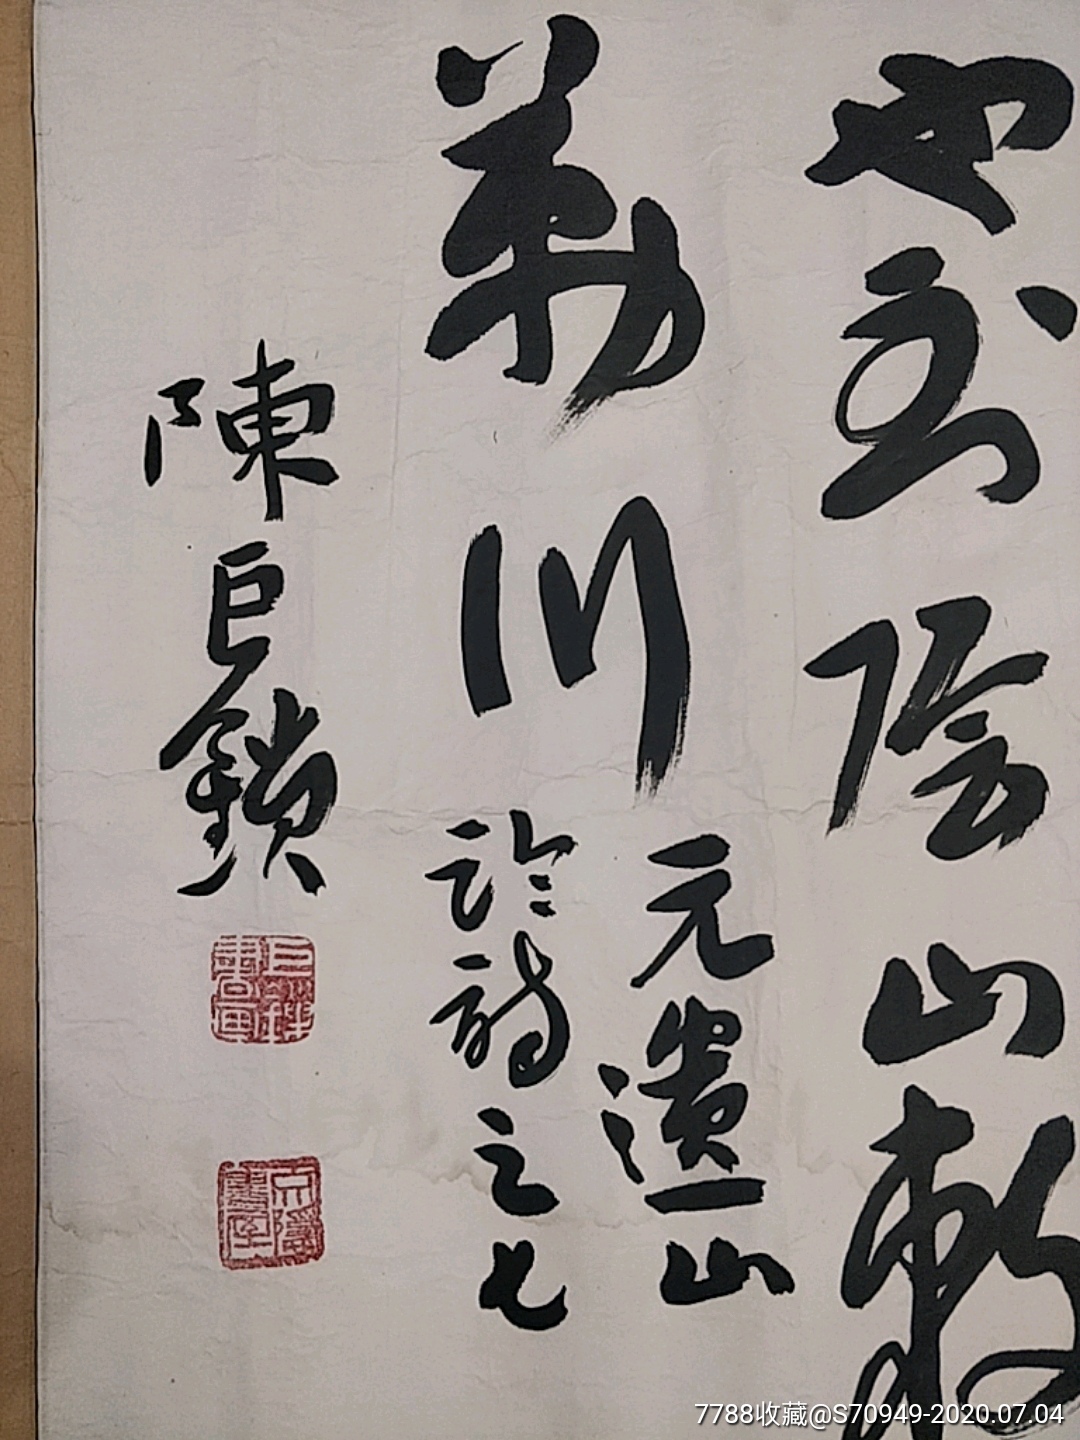 也到陰山敕
勒川
元遺山
論詩之七
陳巨鎖
巨鎖書畫
7788收藏@S70949-2020.07.04